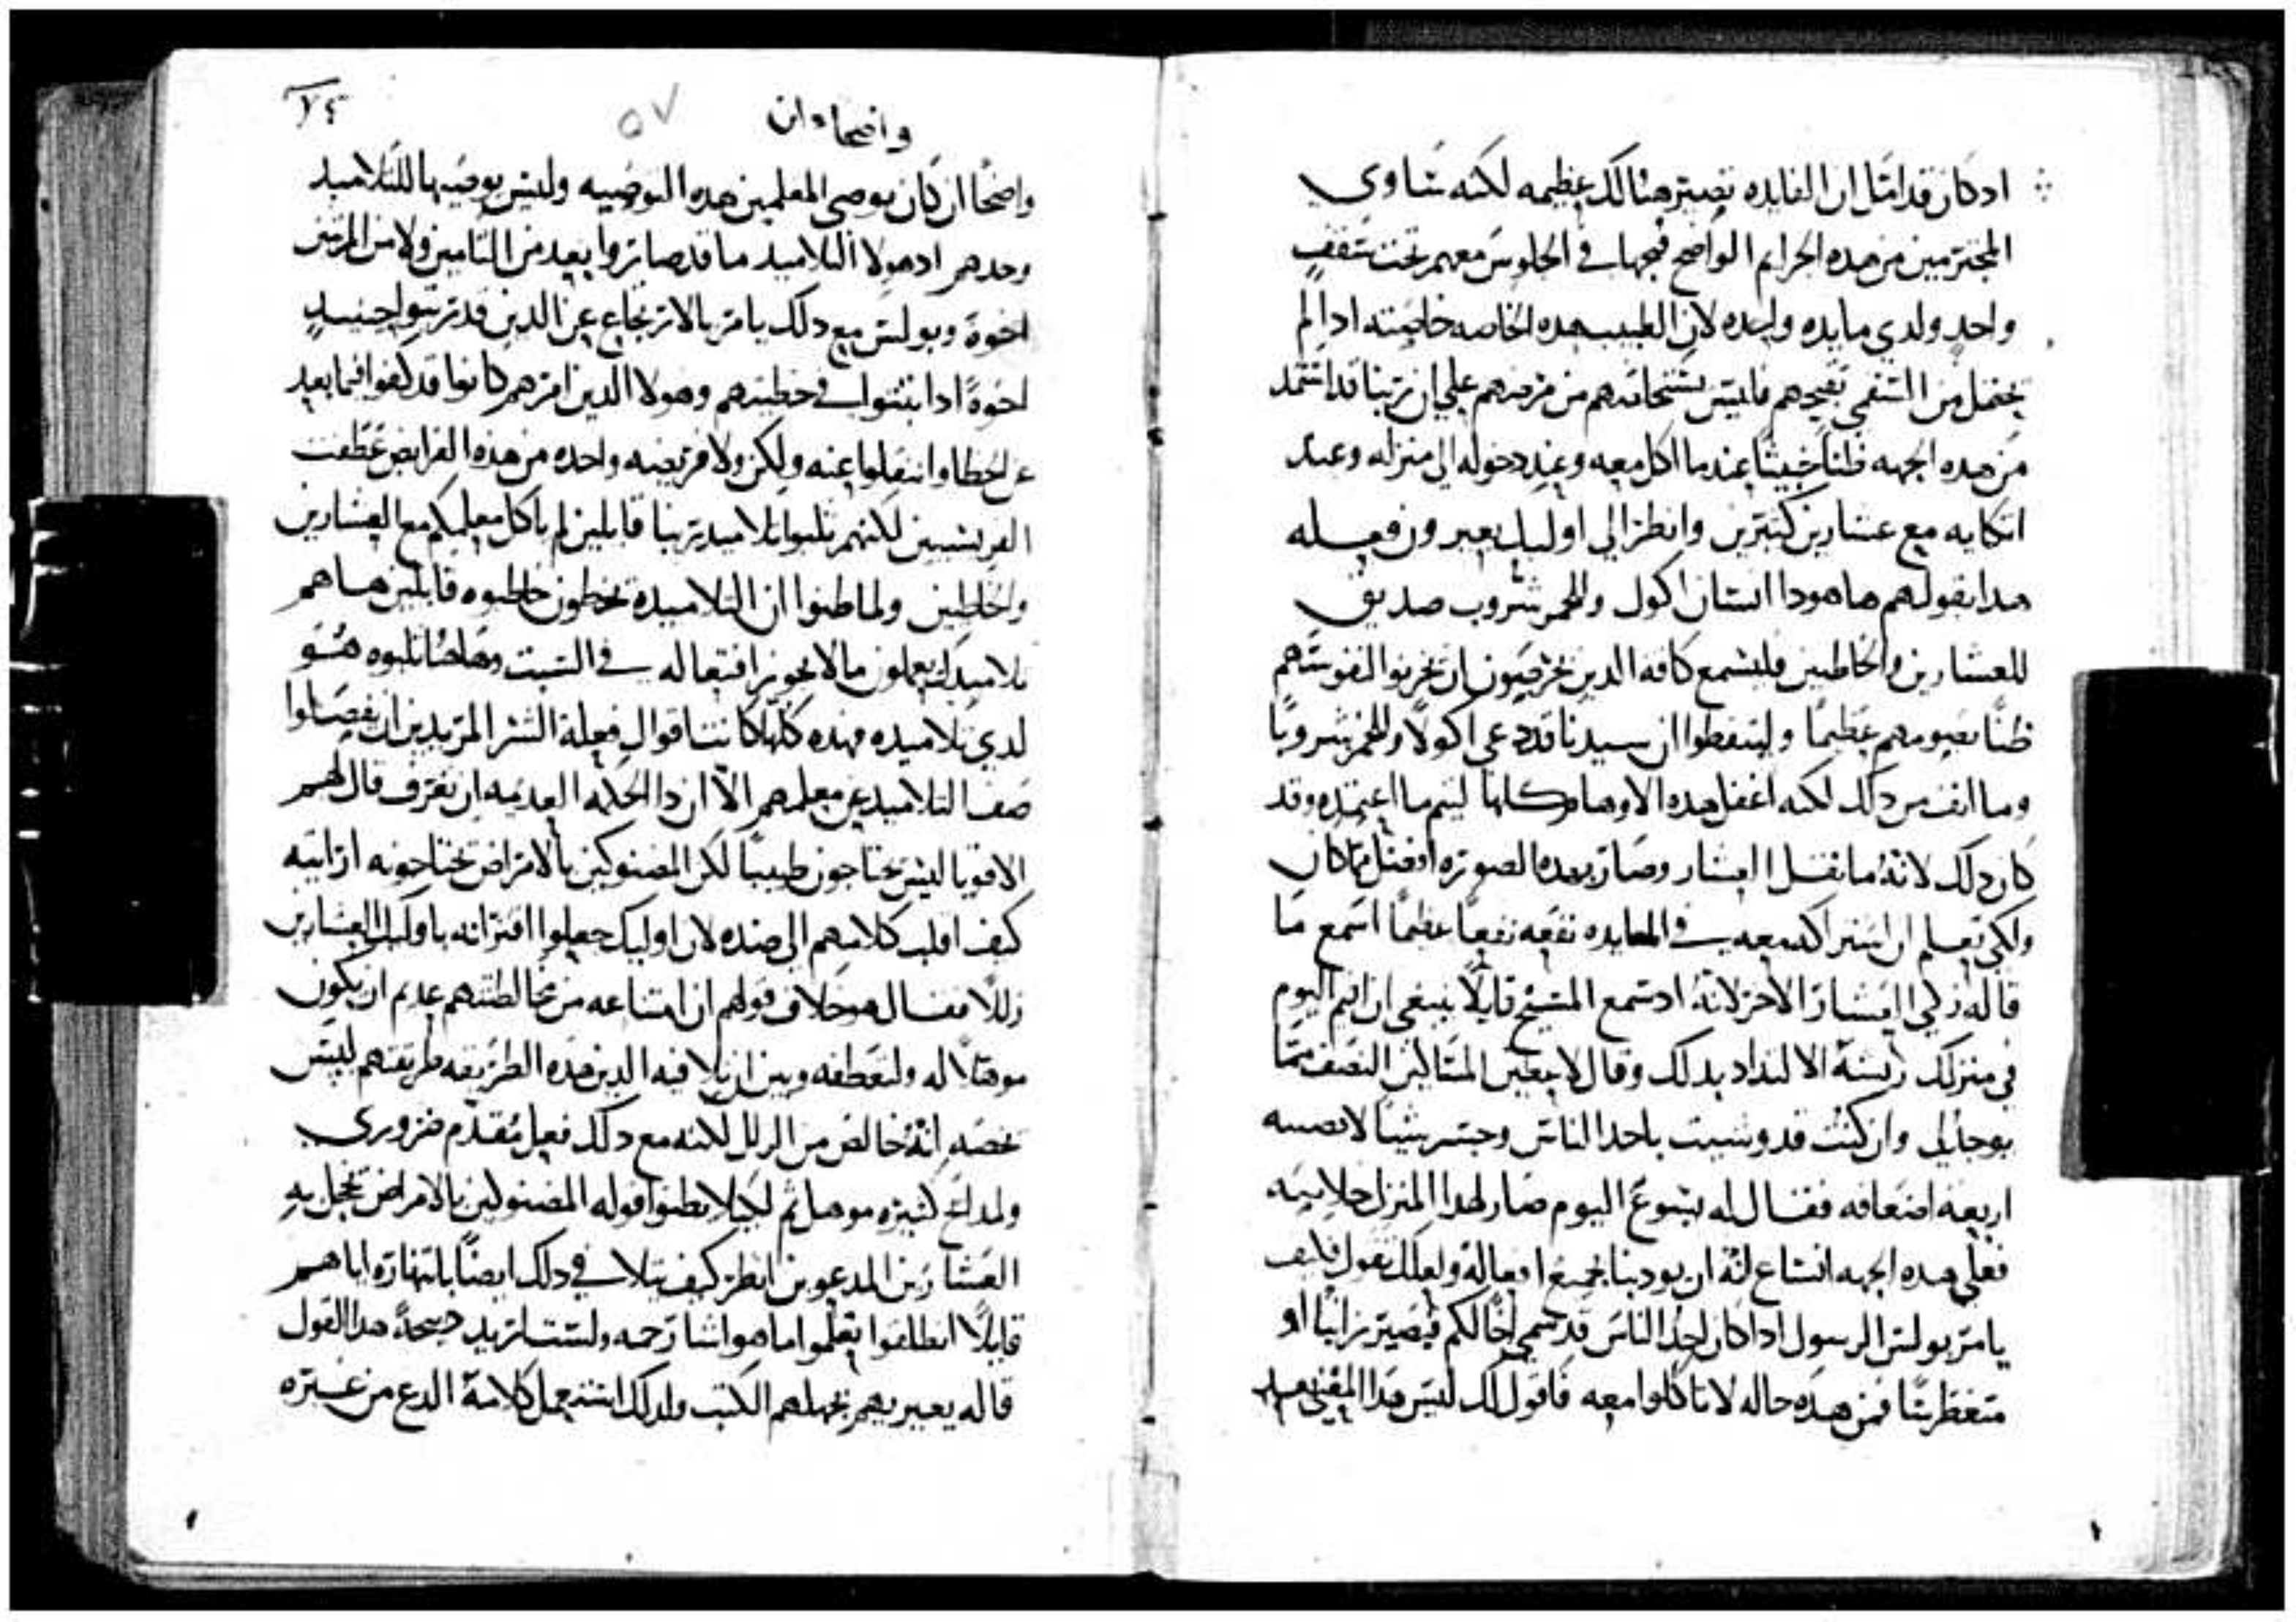 ادكان قد امتل ان الفايده تصير هنالك عظيمه لكنه تساوي
المجترمين من هده الجرايم الواضح قبحها في الجلوس معهم تحت سقف
واحد ولدي مايده واحده لان الطبيب هده الخاصه خاصته ادا لم
يحتمل من المشفى تقيحهم فليس يستخلصهم من مرضهم علي ان ربنا قد اشتمل
من هده الجهه ظناً خبيثاً عندما اكل معه وعند دخوله الي منزله وعند
اتكايه مع عشارين كثيرين وانظر الي اوليك يعيرون فعله
هدا بقولهم ها هودا انسان اكول وللخمر شروب صديق
للعشارين والخاطيين فليسمع كافه الدين يحرصون ان يحربوا لنفوسهم
ظناً بصومهم عظيماً وليتفطنوا ان سيدنا قد دعي اكولاً وللخمر شروباً
وما انف من دلك لكنه اغفل هده الاوهام كلها ليتم ما اعتمده وقد
كان دلك لانه ما نقل العشار وصار بهده الصوره افضل مما كان
ولكي تعلم ان اشتراكه معه في المايده نفعه نفعاً عظيماً اسمع ما
قاله زكي العشار الاخر لانه اد سمع المسيح قايلاً ينبغي ان اقيم اليوم
في منزلك ريشه الالتداد بدلك وقال لا بعطين المساكين النصف مما
يوجد لي وان كنت قد وشيت باحد الناس وخسر شيئا لاعطينه
اربعه اضعافه فقال له يسوع اليوم صار لهدا المنزل خلاصه
فعلي هده الجهه انشاع لنا ان يودبنا بجميع افعاله ولعلك تقول فكيف
يامر بولس الرسول ادا كان احد الناس قد سمي اخاً لكم فيصير زانياً او
متغطرساً فمن هده حاله لا تاكلوا معه فاقول لك ليس هدا المعني هو
واضحا ان
٧٤
٥٧
واضحاً ان كان يوصي المعلمين هده التوصيه وليس يوصيها للتلاميد
وحدهم اد هولا التلاميد ما قد صاروا بعد من التامين ولا من المرتين
اخوة وبولس مع دلك يامر بالارتجاع عن الدين قد ترتبوا حينيد
اخوةً ادا ثبتوا في خطيتهم وهولا الدين امرهم كانوا قد كفوا فيما بعد
عن الخطا وانتقلوا عنه ولكن ولا فريضه واحده من هده الفرايض عطفت
الفريسيين لكنهم ثلبوا تلاميد ربنا قايلين لم ياكل معلمكم مع العشارين
والخاطيين ولما ظنوا ان التلاميده يخطون خاطبوه قايلين ها هم
تلاميدك يعملون ما لا يجوز افتعاله في السبت وهاهنا ثلبوه هو
لدي تلاميده فهده كلها كانت اقوال فعلة الشر المريدين ان يفصلوا
صف التلاميد عن معلمهم الا ان دا الحكمه العديمه ان تعرف قال لهم
الاقويا ليس يحتاجون طبيباً لكن المضنوكين بالامراض يحتاجونه ارايته
كيف اقلب كلامهم الي ضده لان اوليك جعلوا اقترانه باوليك العشارين
زللاً فقال هو خلاف قولهم ان امتناعه من مخالطتهم عديم ان يكون
موهلاً له ولتعطفه وبين ان تلافيه الدين هده الطريقه طريقتهم ليس
يخصه انه خالص من الزلل لكنه مع دلك فعل مقدم ضروري
ولمدائح كثيره موهل ثم لكيلا يظنوا قوله المضنوكين بالامراض تخجل به
العشارين المدعوين انظر كيف تلافي دلك ايضاً بانتهاره اياهم
قايلاً انطلقوا تعلموا ما هو انشا رحمه ولست اريد دبيحةً هدا القول
قاله يعيرهم بجهلهم الكتب ولدلك استعمل كلامه اللدع من غيره